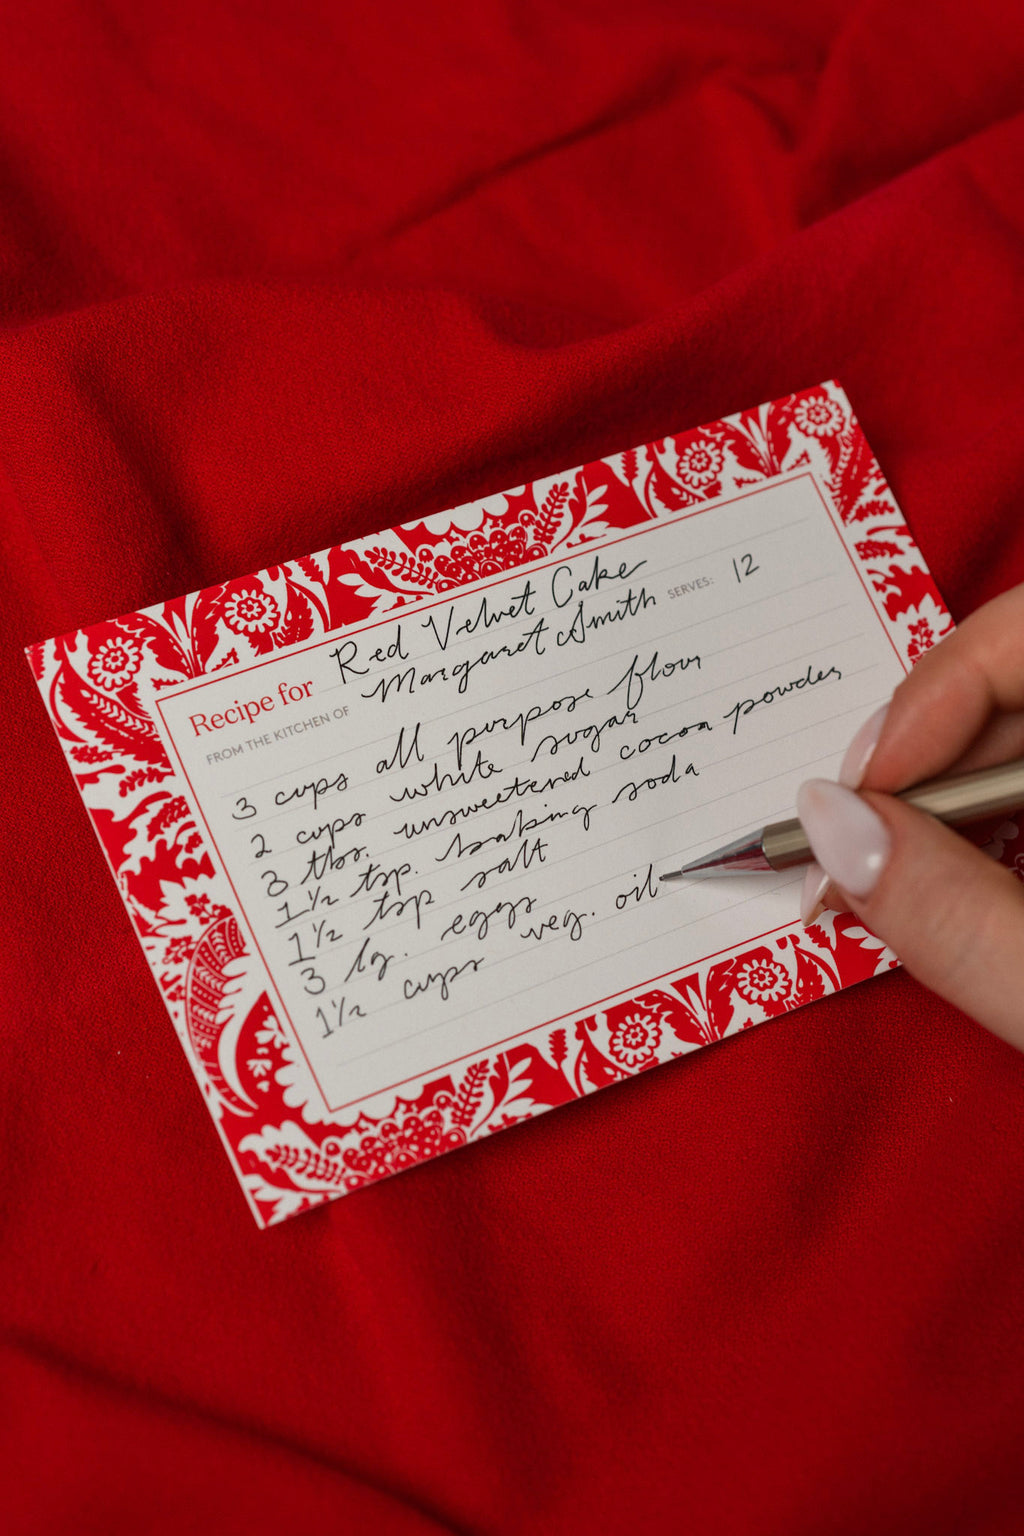 Recipe for Red Velvet Cake
FROM THE KITCHEN OF Margaret Smith SERVES: 12
3 cups all purpose flour
2 cups white sugar
3 tbs. unsweetened cocoa powder
1 1/2 tsp. baking soda
1 1/2 tsp salt
3 lg. eggs
1 1/2 cups veg. oil